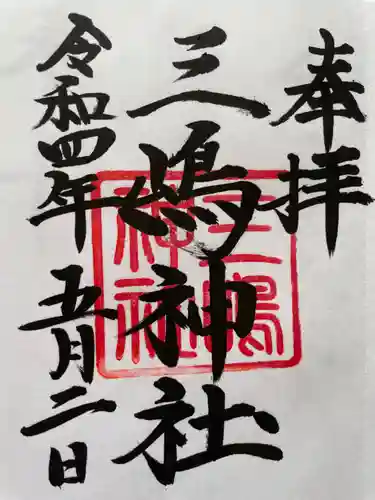 奉拝
三嶋神社
令和四年五月二日
三嶋
神社